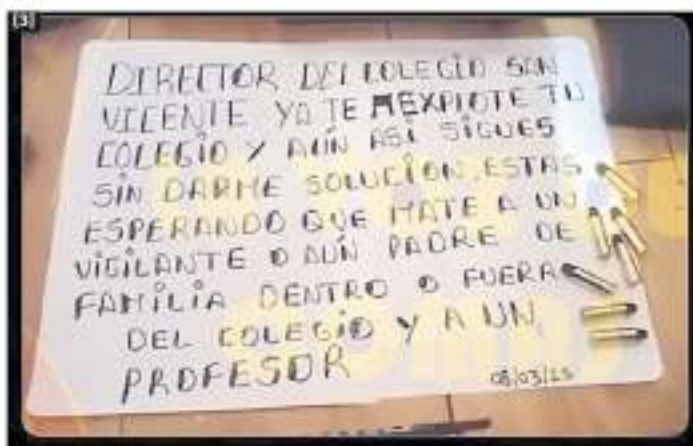 [3]
DIRECTOR DEL COLEGIO SAN
VICENTE YA TE EXPLOTE TU
COLEGIO Y AÚN ASÍ SIGUES
SIN DARME SOLUCIÓN, ESTAS
ESPERANDO QUE MATE A UN
VIGILANTE O AUN PADRE DE
FAMILIA DENTRO O FUERA
DEL COLEGIO Y A UN
PROFESOR